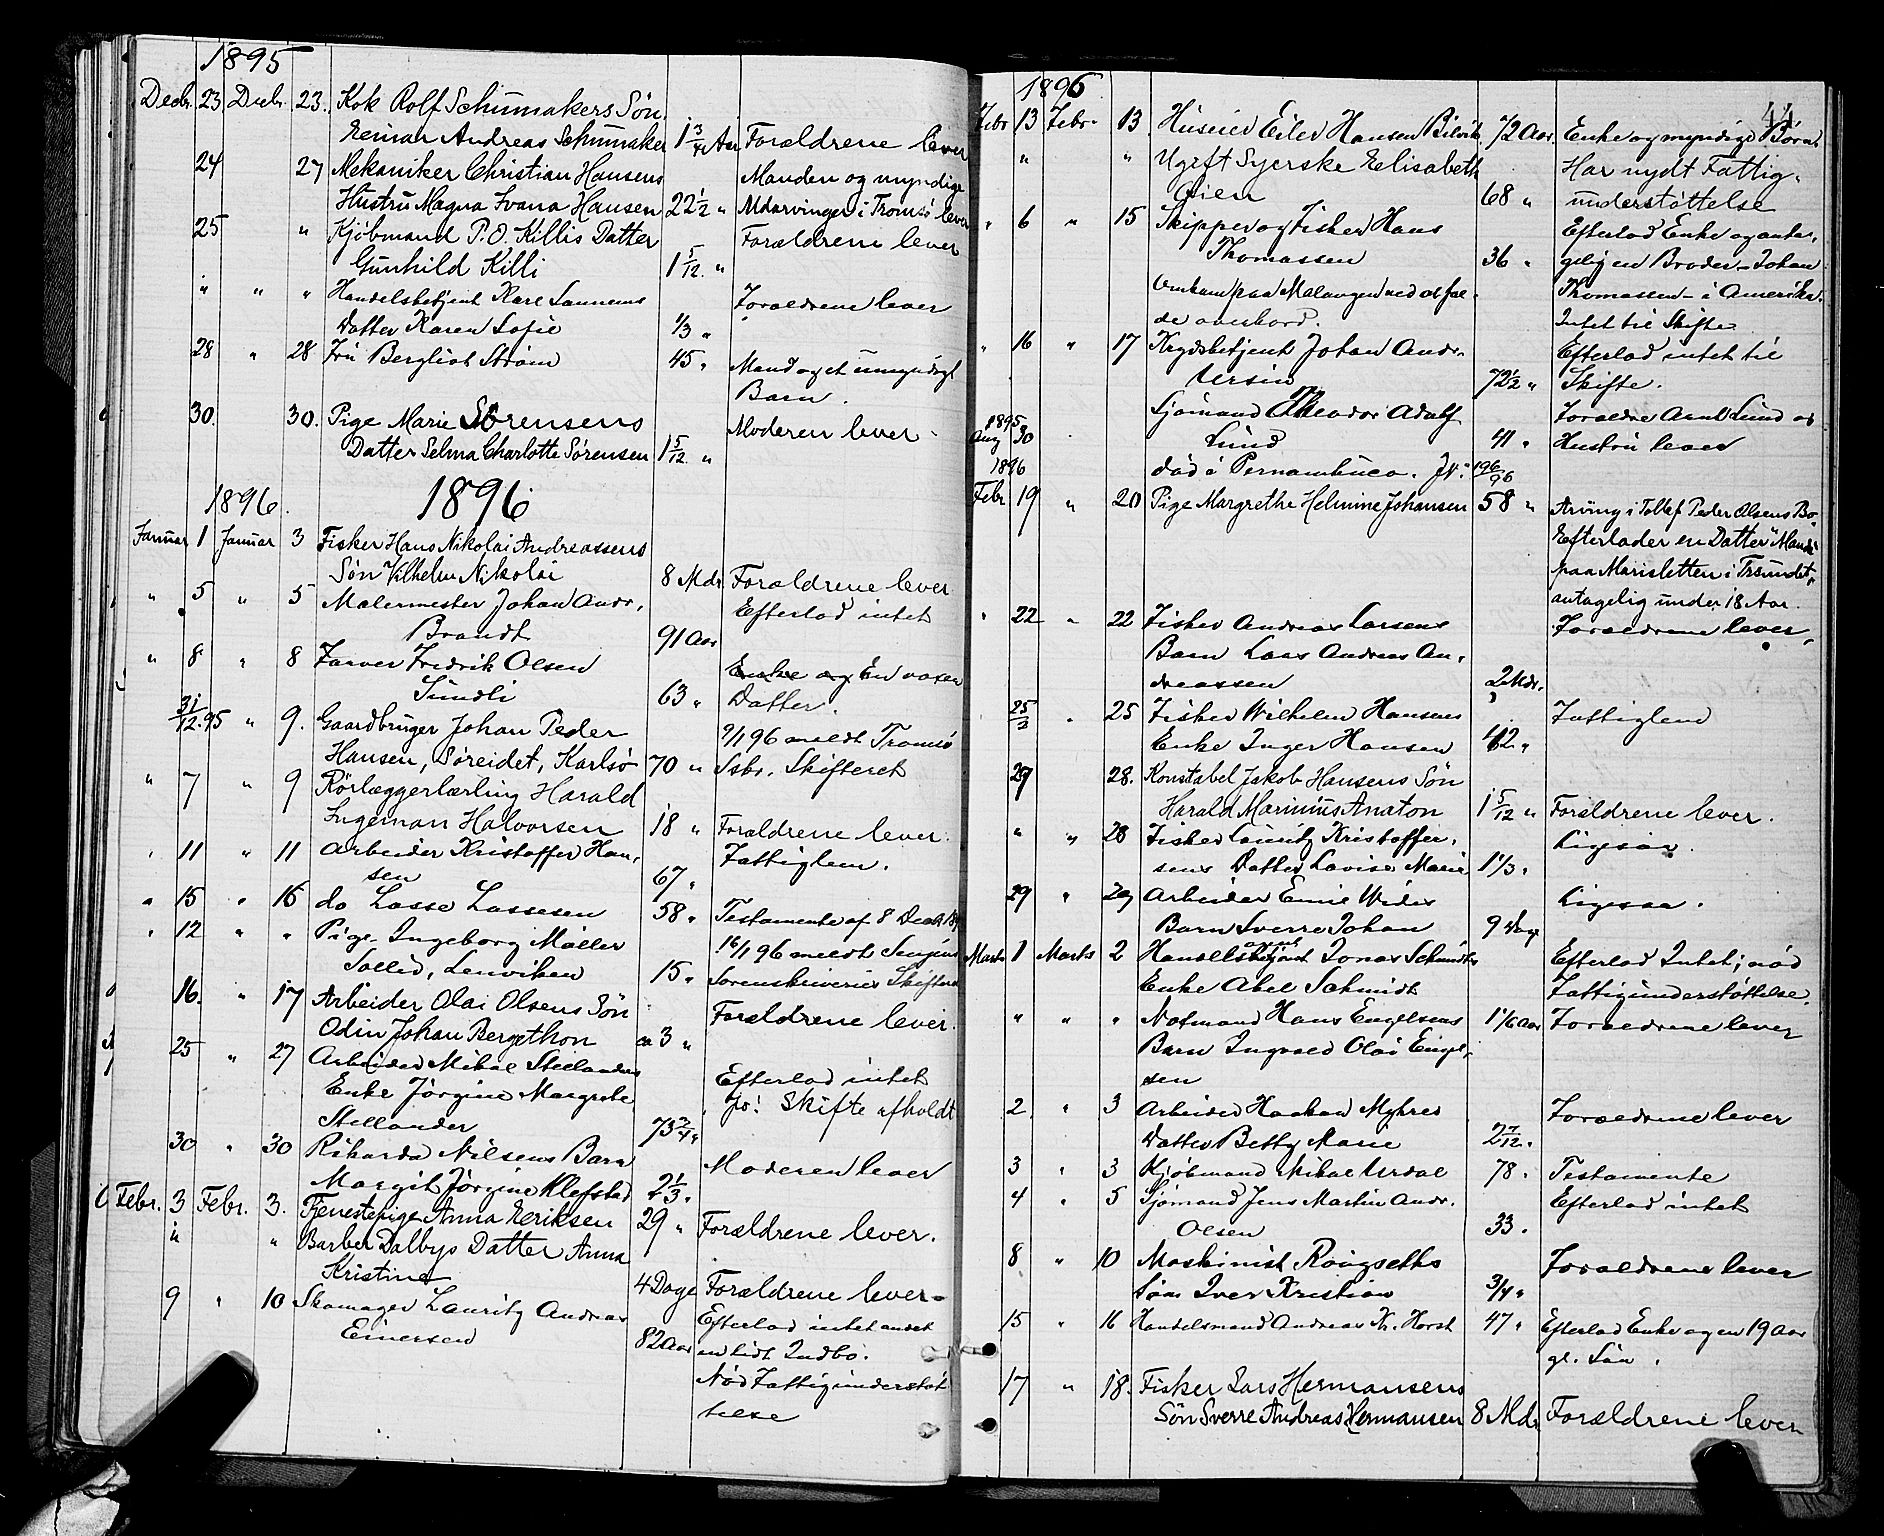 1895
Decbr. 23 Decbr. 23. Kok Rolf Schumakers Søn
Einar Andreas Schumaker 1 3/4 Aar Forældrene lever
24 27 Mekaniker Christian Hansens Manden og myndige
Hustru Magna Ivana Hansen 22 1/2 " Udarvinger i Tromsö lever
25 " Kjöbmand P. O. Killis Datter Forældrene lever
Gunhild Killi 1 5/12 "
" " " Handelsbetjent Karl Forældrene lever
Datter Karen Sofie 1/3 "
28 " 28 Fru Bergliot Strøm 45 " Mand og et umyndigt
Barn.
30. 30. Pige Marie Sørensens Moderen lever
Datter Selma Charlotte Sørensen 1 5/12 "
1896. 1896
Januar 1 Januar 3 Fisker Hans Nikolai Andreassens
Søn Vilhelm Nikolai 8 Mdr Forældrene lever
" 5 " 5 Malermester Johan Andr. Efterlod intet
Brandt 91 Aar
" 8 " 8 Farver Fredrik Olsen Enke og En voxen
Sundli 63 " Datter.
31/12.95 " 9. Gaardbruger Johan Peder 9/1 96 meldt Tromsö
Hansen, Søreidet, Karlsö 70 " Ssbr. Skifteret
" 7 " 9 Rörlæggerlærling Harald
Ingeman Halvorsen 18 " Forældrene lever.
" 11 " 11 Arbeider Kristoffer Han- Fattiglem.
sen 67 "
" 15 " 15 do Lasse Lassesen 58 " Testamente af 8 Decbr
" 12 " " Pige Ingeborg Möller 16/1 96 meldt Senjens
Solli, Lenviken 15 " Sorenskriveries Skifteret
16. " 17 Arbeider Olai Olsens Søn
Odin Johan Bergethon ca 3 " Forældrene lever.
25 " 27 Arbeider Mikal Stellanders
Enke Jørgine Margrete Efterlod intet
Stellander 73 3/4 " Jo! Skifte afholdt
30 " 30 Rikarda Nilsens Barn Moderen lever
Margit Jörgine Klefstad 2 1/3 "
Febr. 3 Febr. 3. Tjenestepige Anna Eriksen 29 " Forældrene lever.
" " Barber Dalbys Datter Anna
Kristine 4 Dage Forældrene lever
9 " 10 Skomager Lauritz Andreas Efterlod intet andet
Einersen 82 Aar en lidt Indbo.
Nød Fattigunderstöt
telse
1896 44
Febr 13 Febr. 13 Huseier Eiler Hansen 72 Aar. Enke og myndige Børn
" " Ugift Syerske Elisabeth Har nydt Fattig-
68 " understöttelse
" 6 " 15 Skipper og Fisker Hans Efterlod Enke og anta-
Thomassen 36 " gelig en Broder - Johan
Omkom paa Malangen ved at fal- Thomassen - i Amerika.
de overbord. Intet til Skifte
" 16 " 17 Krydsbetjent Johan Andr. Efterlod intet til
Ursin 72 1/2 " Skifte.
1895 Sjömand Theodor Adolf Forældre Arnt Lund og
Aug 30 Lund 41 " Hustru lever
1896 død i Pernambuco. Jr: 196/96
Febr 19 " 20 Pige Margrethe Helmine Johansen 58 " Arving i Tollef Peder Olsens Bo
Efterlader en Datter
paa Marisletten i Trsundet,
antagelig under 18 Aar.
" 22 " 22 Fisker Andreas Larsens Forældrene lever,
Barn Lars Andreas An-
dreassen 2 Mdr.
25/2 " 25 Fisker Wilhelm Hansens Fattiglem
Enke Inger Hansen 42 "
29 28. Konstabel Jakob Hansens Søn
Harald Marinius Anaton 1 5/12 " Forældrene lever.
" " 28 Fisker Lauritz Kristoffer- Ligesaa.
sens Datter Lovise Marie 1 1/3 "
29 " 29 Arbeider Ligesaa.
Barn Sverre Johan 9 Dage
Marts 1 Marts 2 Jonas Schmidts Efterlod Intet; nød
Enke Abel Schmidt Fattigunderstøttelse.
" " " Notmand Hans Engelsens 1 1/6 Aar Forældrene lever
Barn Ingvald Olai Engel-
sen
2 " 3 Arbeider Haakon Myhres Forældrene lever
Datter Betty Marie 2 7/12 "
3 " 3 Kjöbmand Mikal Urdal 78 " Testamente
4 " 5 Sjömand Jens Martin Andr. Efterlod intet
Olsen 33 "
8 " 10 Maskinist Forældrene lever
Søn Iver Kristian 3/4 "
15 " 16 Handelsmand Andreas Kr. Horst 47 " Efterlod Enke og en 19 Aar
gl. Søn.
17 " 18. Fisker Lars Hermansens
Søn Sverre Andreas Hermansen 8 Mdr Forældrene lever